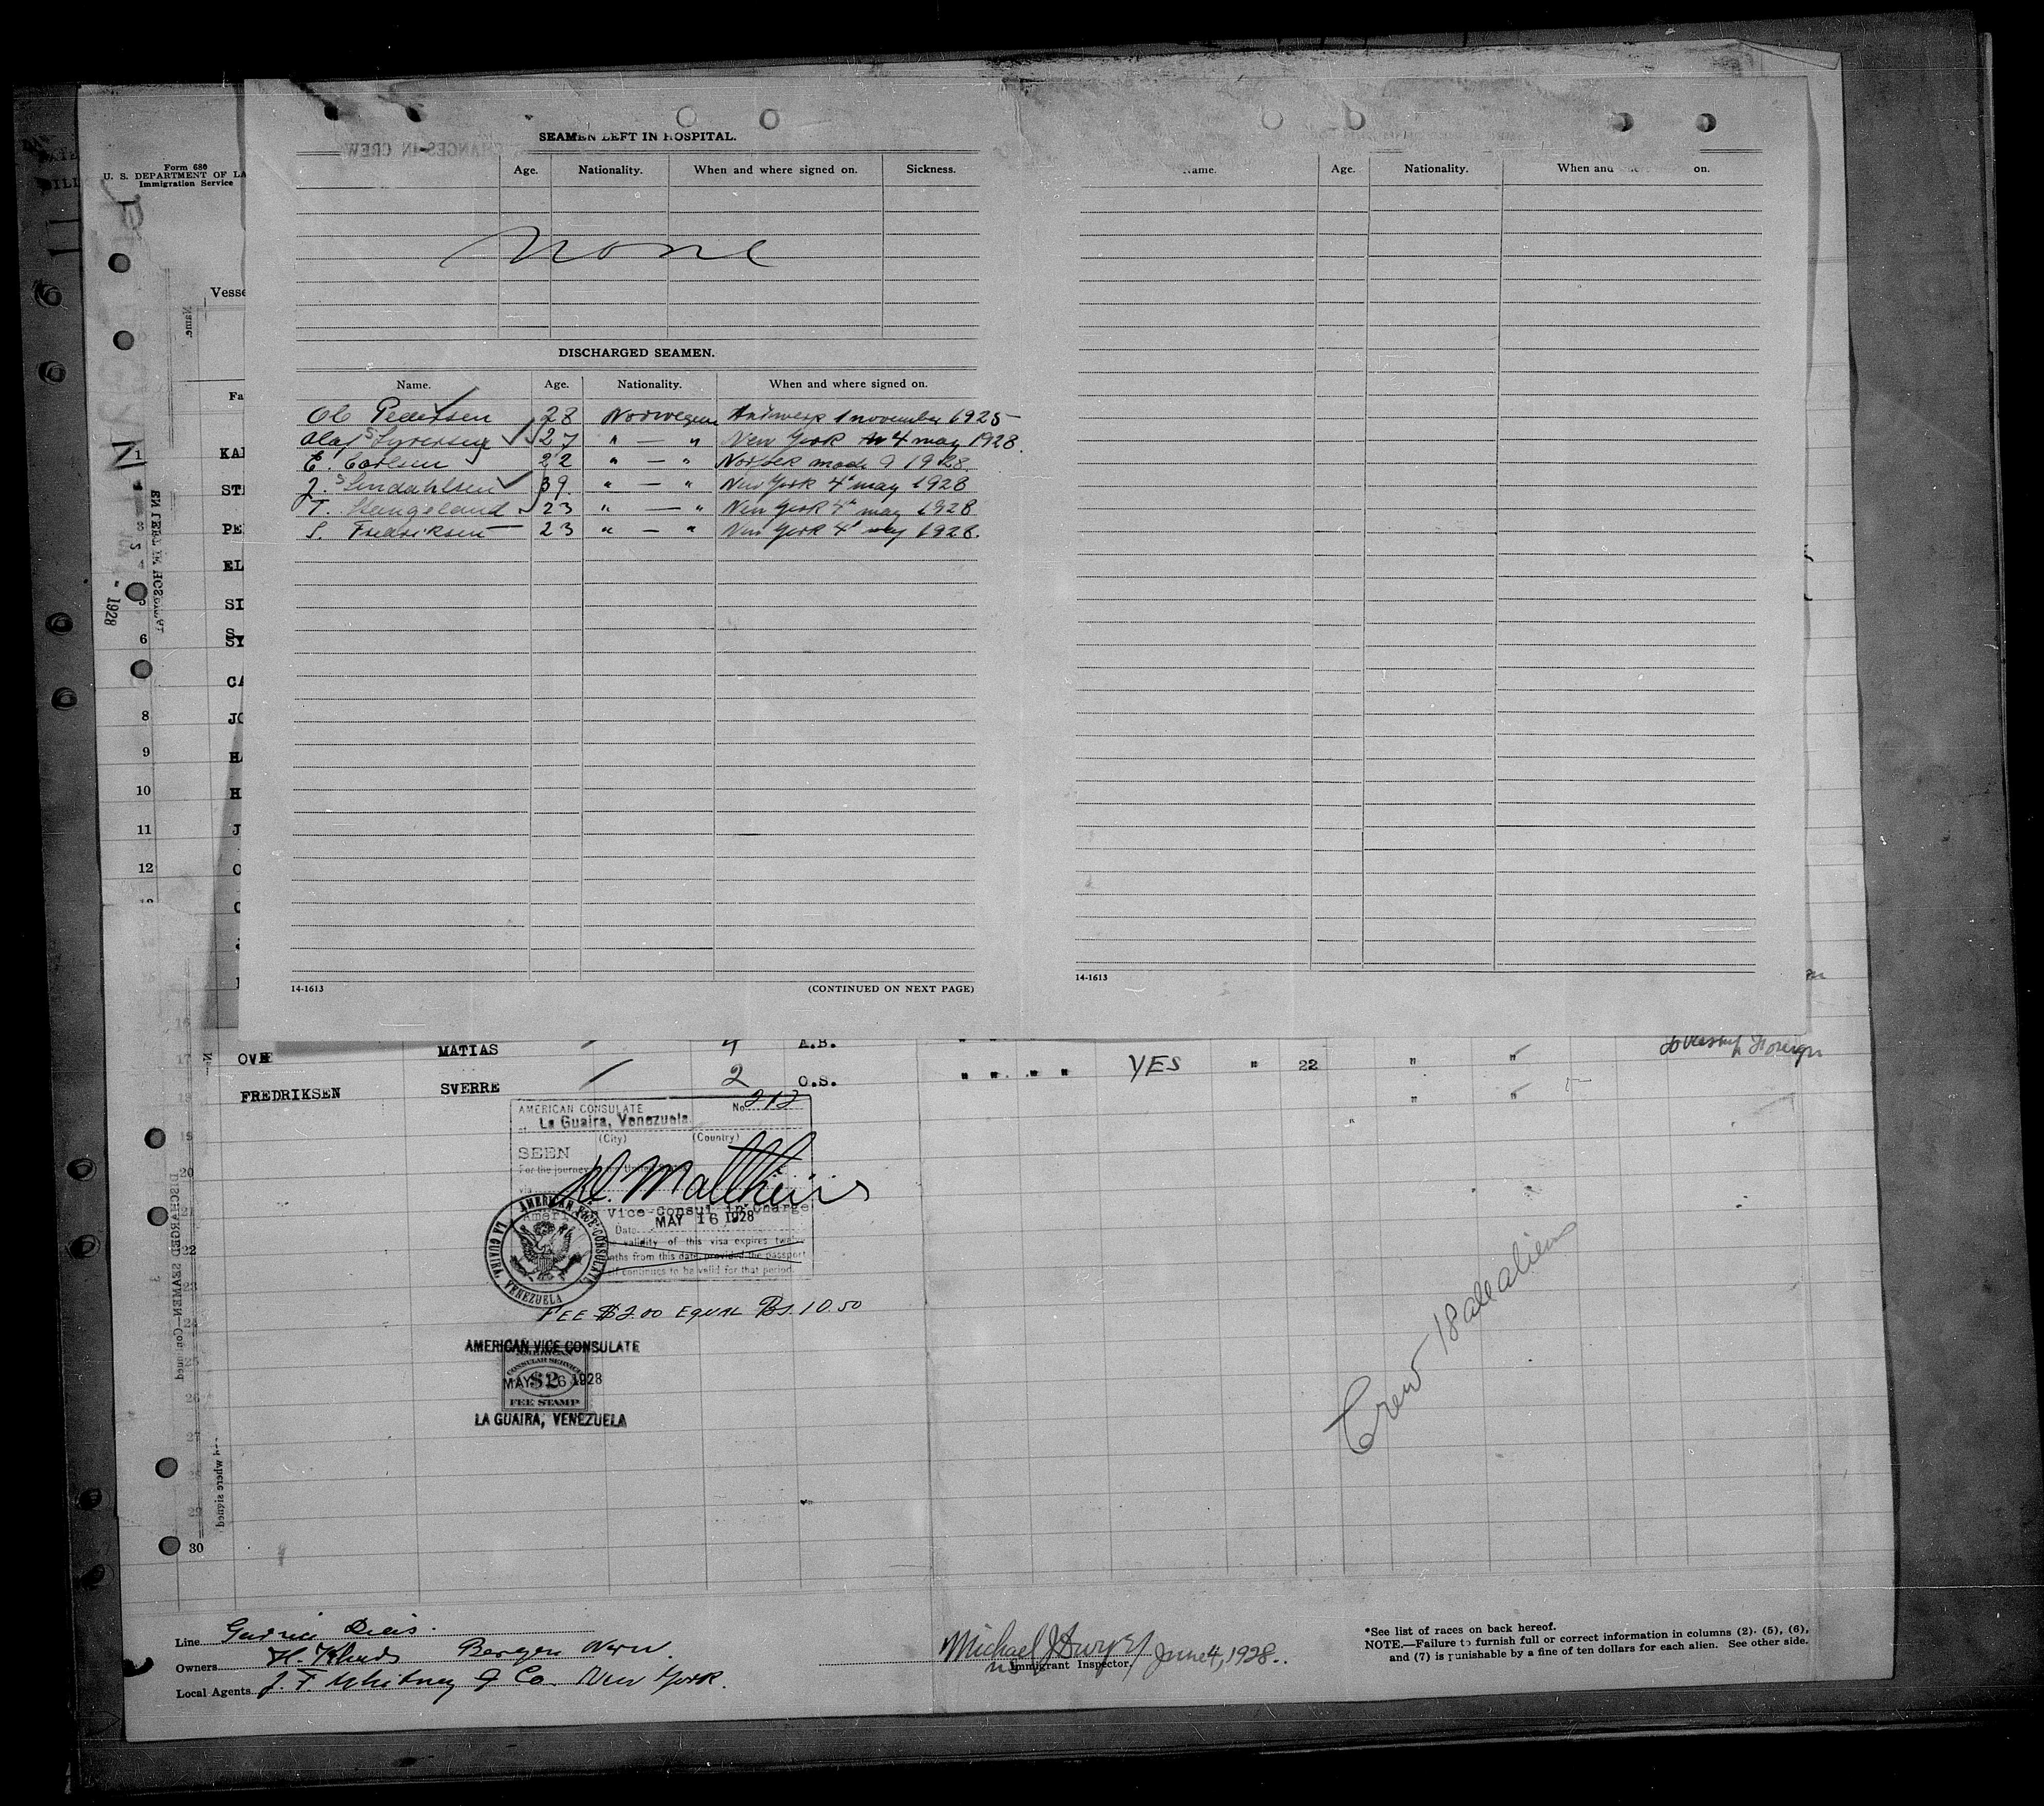 SEAMEN LEFT IN HOSPITAL.
Age. Nationality. When and where signed on. Sickness.
none
DISCHARGED SEAMEN.
Name. Age. Nationality. When and where signed on.
Ole Pedersen 28 Norwegian Antwerp 1 november 1925
Olaf Syversen 27 " — " New York 4 may 1928
E. Carlsen 22 " — " 9 1928.
J. Sindahlsen 39. " — " New York 4 may 1928
T. Stangeland 23 " — " New York 4 may 1928
S. Fredriksen 23 " — " New York 4 may 1928.
14-1613 (CONTINUED ON NEXT PAGE)
Age. Nationality. When and where on.
14-1613
Form 680
U. S. DEPARTMENT OF LA
Immigration Service
Vesse
Fa
1 KAI
PE
EL
SI
6 SY
CA
8 JO
9 HA
10 H
11 J
12 O
1928
17 OVE MATIAS 4 A.B.
FREDRIKSEN SVERRE 2 O.S. " " " " YES " 22 " "
19
20
22
26
30
AMERICAN CONSULATE No. 212
at La Guaira, Venezuela.
(City) (Country)
SEEN
For the journey to the United States
via
Matthews
Vice-Consul in Charge
Date MAY 16 1928
validity of this visa expires twelve
months from this date provided the passport
itself continues to be valid for that period.
AMERICAN VICE-CONSULATE
LA GUAIRA, VENEZUELA
FEE $2.00 EQUAL Bs. 10.50
AMERICAN VICE CONSULATE
AMERICAN
CONSULAR SERVICE
$2
MAY 16 1928
FEE STAMP
LA GUAIRA, VENEZUELA
Crew 18 all aliens
Line
Owners Bergen
Local Agents J. F. Whitney & Co. New York.
Michael J Dwyer June 4, 1928.
Immigrant Inspector.
*See list of races on back hereof.
NOTE.—Failure to furnish full or correct information in columns (2), (5), (6),
and (7) is punishable by a fine of ten dollars for each alien. See other side.